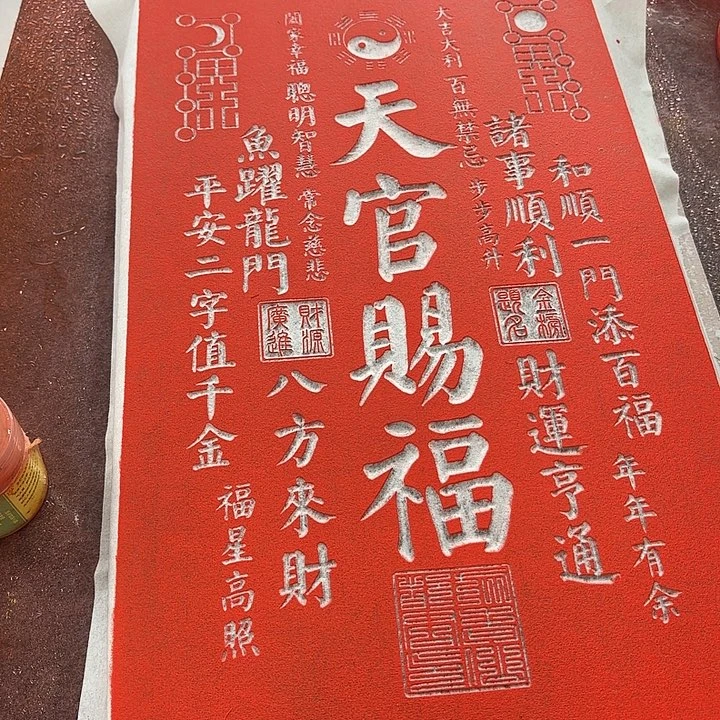 和順一門添百福 年年有余
諸事順利
金榜
題名
財運亨通
大吉大利 百無禁忌 步步高升
天官賜福
闔家幸福 聰明智慧 常念慈悲
魚躍龍門
財源
廣進
八方來財
平安二字值千金 福星高照